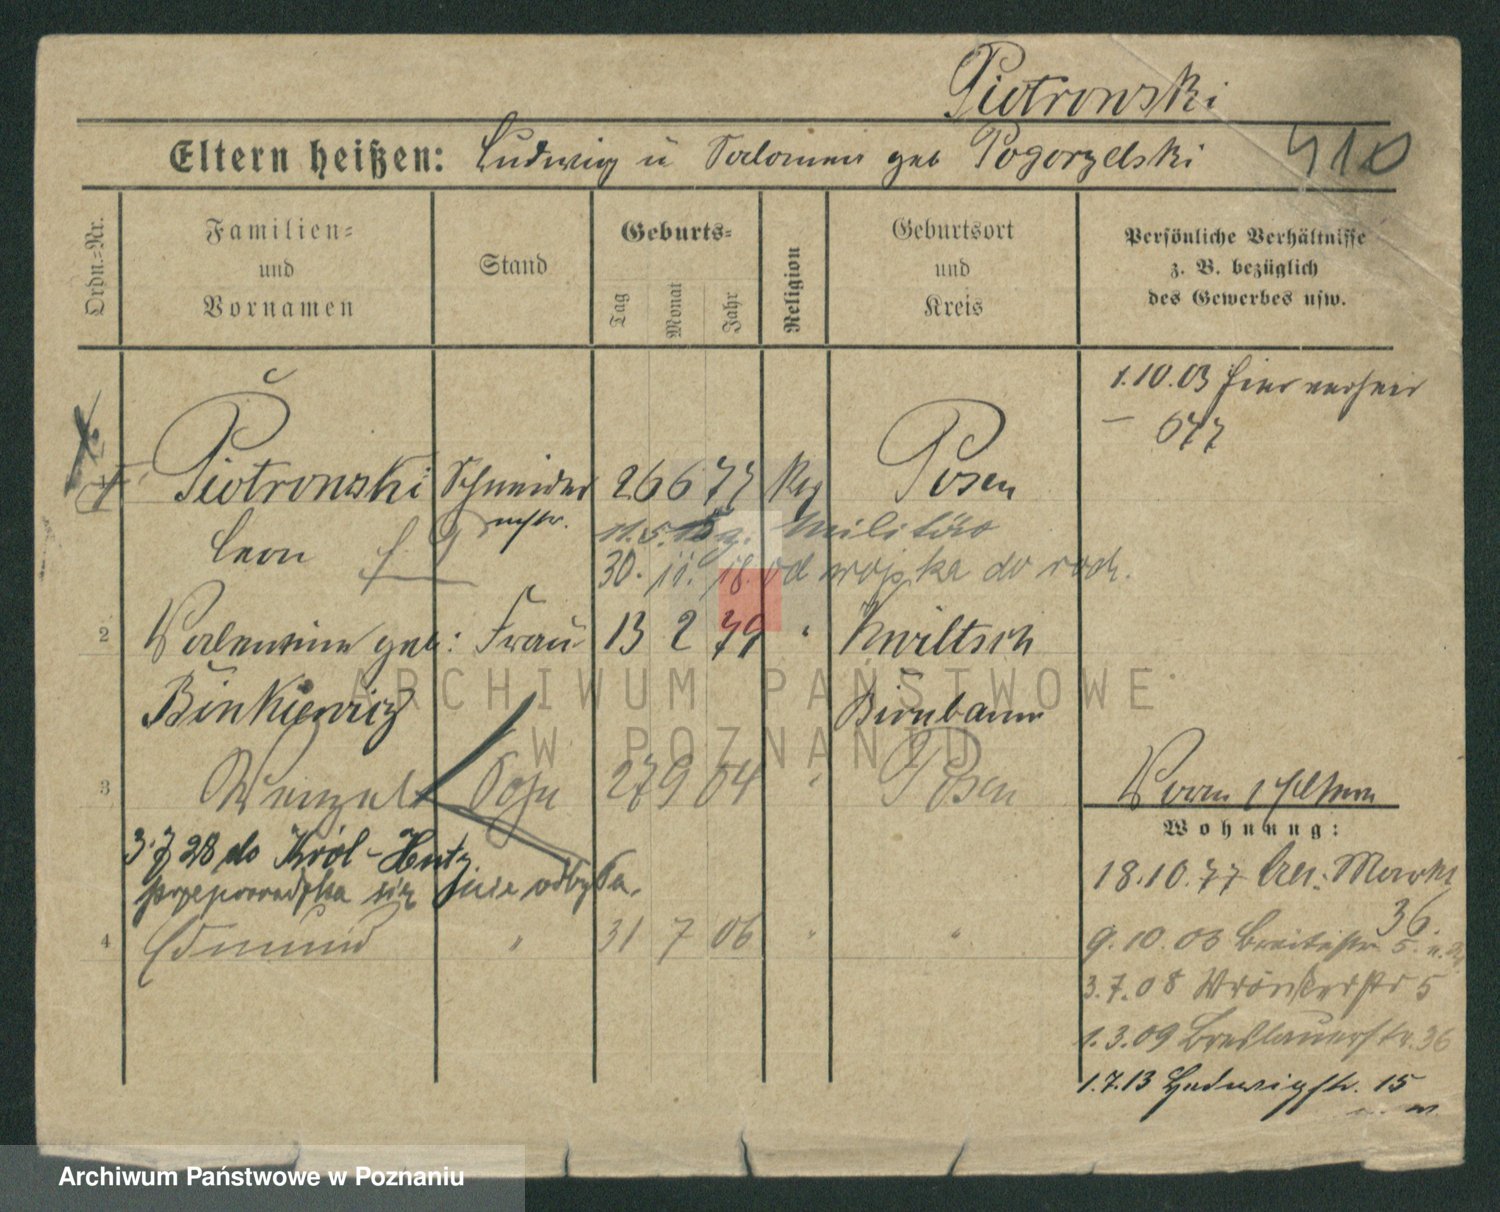 Piotrowski
Eltern heißen: Ludwig u Salomea geb Pogorzelski 410
Ordn.-Nr.
Familien- und Vornamen
Stand
Geburts-
Tag
Monat
Jahr
Religion
Geburtsort und Kreis
Persönliche Verhältnisse z. B. bezüglich des Gewerbes usw.
1.10.03 hier verheir
677
Piotrowski Schneider 26 6 77 Posen
mstr.
Leon
11.5.15 z. Militär
30. 11. 18. od wojska do rodz.
2 Valentine geb: Frau 13 2 79 " Kwiltsch
Binkiewicz Birnbaum
3 Wenzel Sohn 27 9 04 " Posen
Vorm s Eltern
Wohnung:
3.7 28 do Król-Hutz
przeprowadzka się nie odbyła.
18.10.77 Alt. Markt
36
4 Edmund " 31 7 06 " "
9.10.03 Breitestr. 5
3.7.08 Wronkerstr 5
1.3.09 Breslauerstr. 36
1.7.13 Hedwigstr. 15
ARCHIWUM PAŃSTWOWE
W POZNANIU
Archiwum Państwowe w Poznaniu